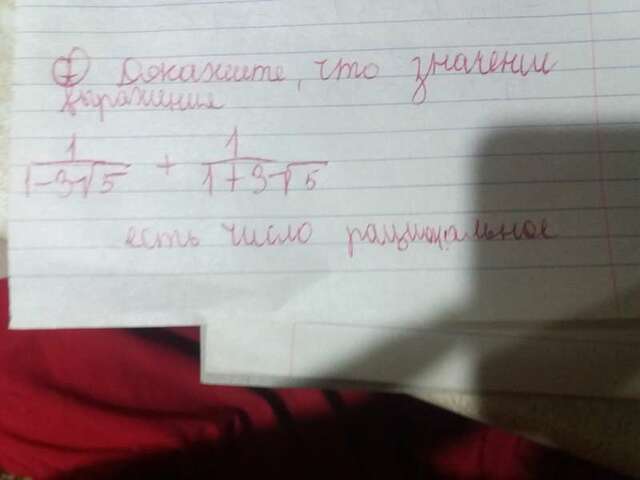 ⑦ Докажите, что значении
выражения
1/(1-3√5) + 1/(1+3√5)
есть число рациональное